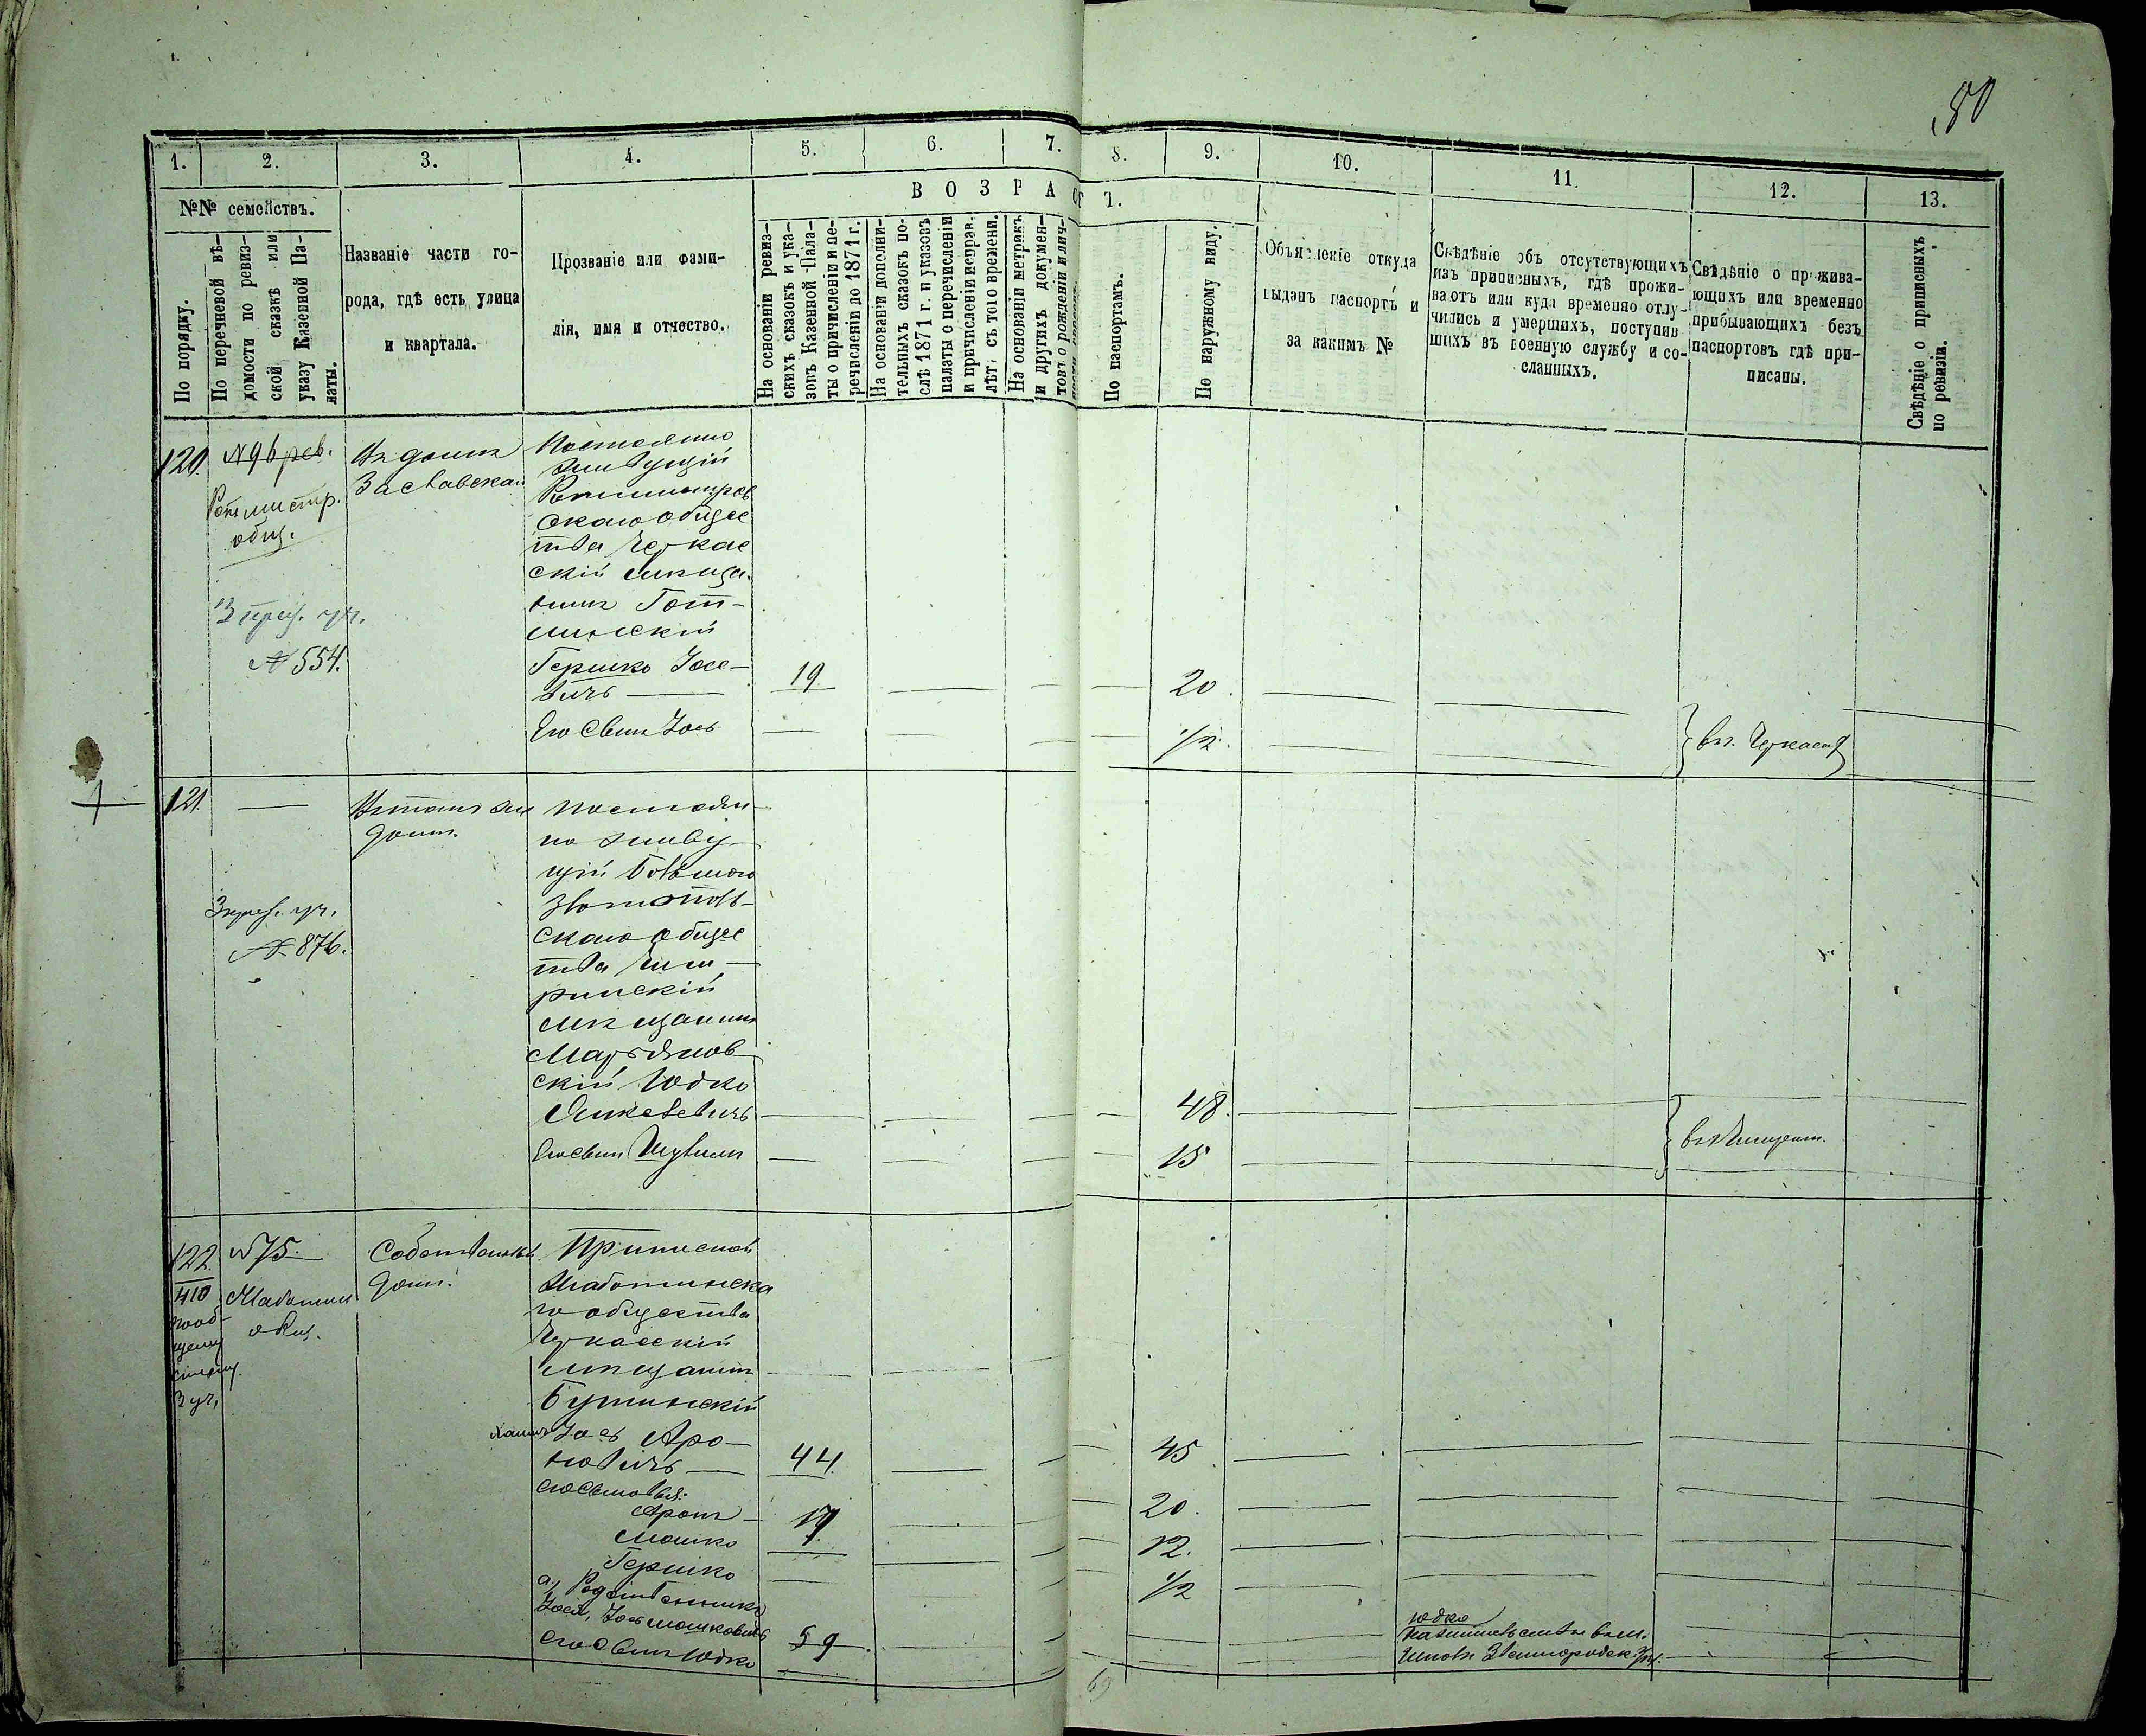 80
1. 2. 3. 4. 5. 6. 7. 8. 9. 10. 11. 12. 13.
№№ семействъ.
По порядку.
По перечневой вѣ-
домости по ревиз-
ской сказкѣ или
указу Казенной Па-
латы.
Названіе части го-
рода, гдѣ есть улица
и квартала.
Прозваніе или фами-
лія, имя и отчество.
ВОЗРАСТ Ъ.
На основаніи ревиз-
скихъ сказокъ и ука-
зовъ Казенной Пала-
ты о причисленіи и пе-
речисленіи до 1871 г.
На основаніи дополни-
тельныхъ сказокъ по-
слѣ 1871 г. и указовъ
палаты о перечисленіи
и причисленіи исправ.
лѣтъ съ того времени.
На основаніи метрикъ
и другихъ докумен-
товъ о рожденіи и лич-
По паспортамъ.
По наружному виду.
Объясненіе откуда
выданъ паспортъ и
за какимъ №
Свѣдѣніе объ отсутствующихъ
изъ приписныхъ, гдѣ прожи-
ваютъ или куда временно отлу-
чились и умершихъ, поступив
шихъ въ военную службу и со-
сланныхъ.
Свѣдѣніе о прожива-
ющихъ или временно
прибывающихъ безъ
паспортовъ гдѣ при-
писаны.
Свѣдѣніе о приписныхъ
по ревизіи.
120.
№ 96 рев.
Ротмистр.
общ.
3 уч.
№ 554.
Въ домѣ
Заславскаго
Постоянно
живущій
Ротмистров
скаго общес
тва Черкас
скій мѣща-
нинъ Гот-
линскій
Гершко Іосе-
вичъ — 19 — — 20. — —
Его сынъ Іось — — — 1/2. — — въ г. Черкасахъ
121. —
3 уч.
№ 876.
домѣ.
постоян-
но живу-
щій Больше
Скаго общес
тва Чиги-
ринскій
мѣщанинъ
Марьянов
скій Юдко
— — — 48. — —
Его сынъ — — — 15 — —
122.
410
по об-
щему
списку
3 уч.
№ 75.
Жаботин
общ.
Собственный
домъ.
Приписной
Жаботинска
го общества
Черкасскій
мѣщанинъ
Хаимъ Іось Аро-
новичъ — 44. — — 45 — — — —
его сыновья:
Аронъ — 17 — — 20. — — — —
Мошко 7. — — 12. — — — —
Гершко — — — 1/2 — — — —
а) Родственники
Іося, Іось Мошковичъ 59. — — — — —
его сынъ Юдко — — —
Юдко
Звенигородск. у.
69